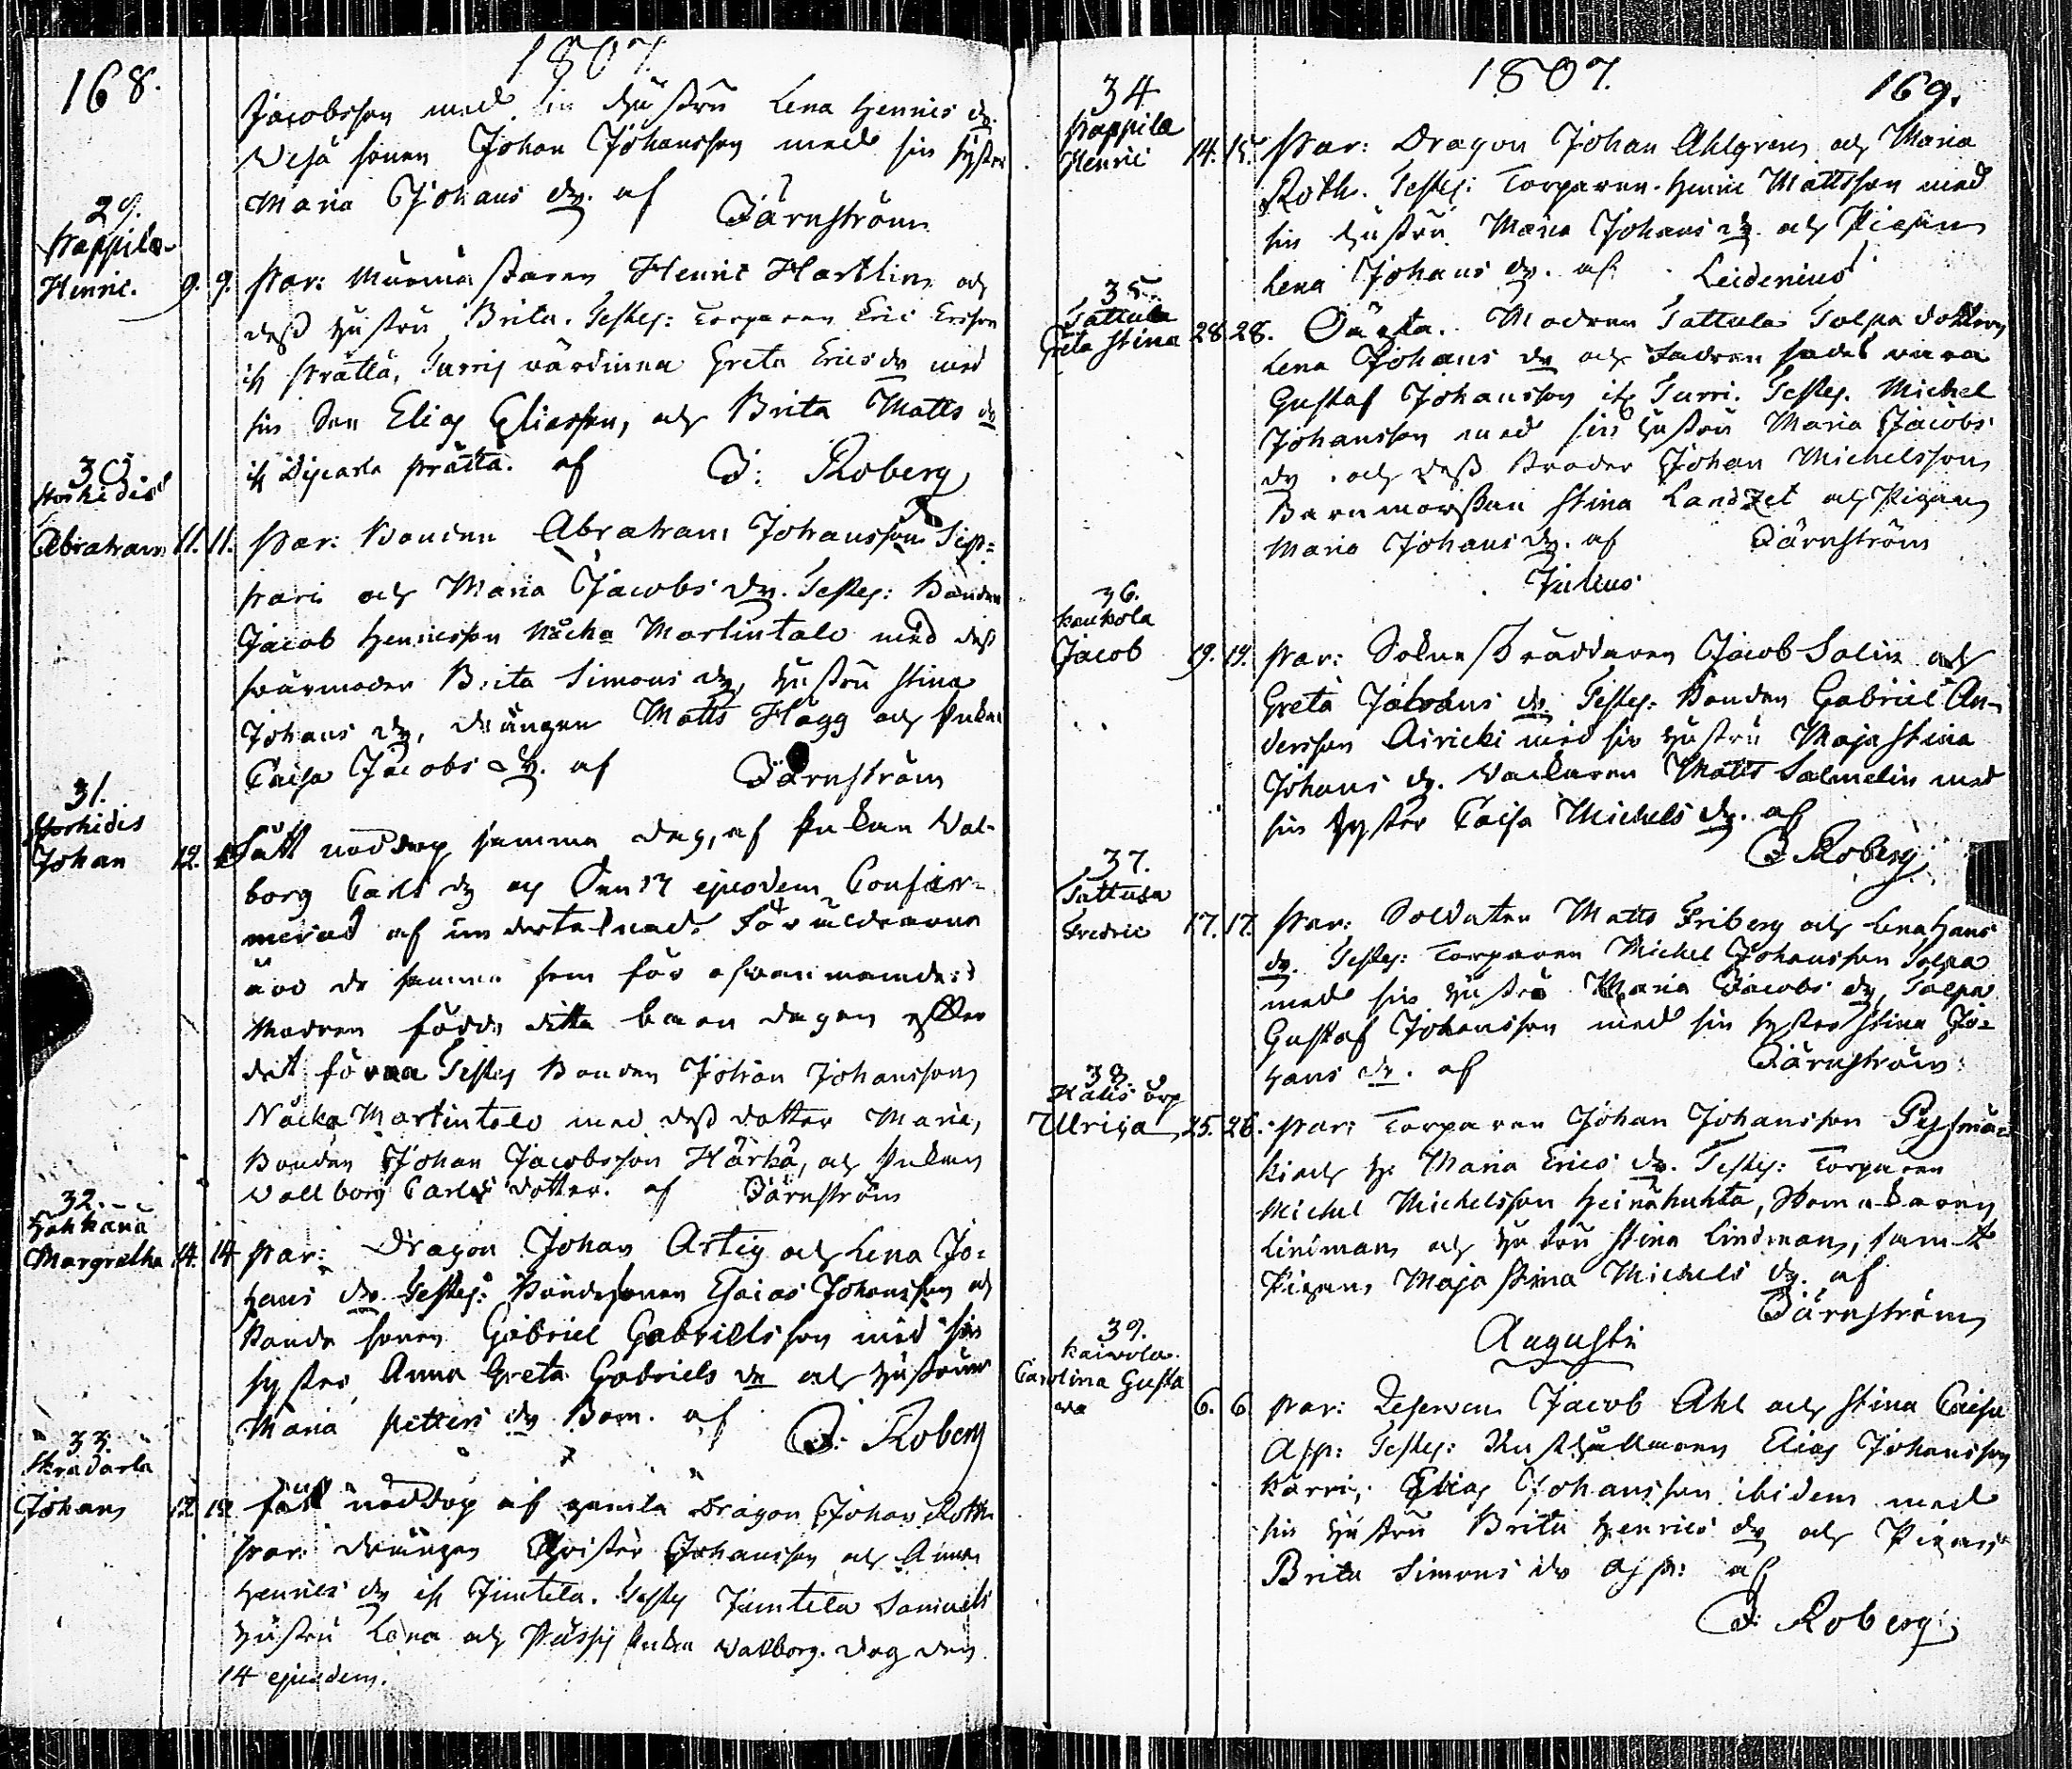 168.
1807.
Jacobsson med sin hustru Lena Henrics dr.
sonen Johan Johansson med sin syster
Maria Johans dr. af Färnström
29.
Pappila
Henric. 9. 9. Par: Henric Hartlin och
dess hustru Brita. Testes: Torparen Eric Ersson
Prättä, Turri värdinna Greta Erics dr med
sin Son Elias Eliasson, och Brita Matts dr
Prättä. af J: Roberg
30
Abraham 11. 11. Par: Bonden Abraham Johansson Sip-
pari och Maria Jacobs dr. Testes: Bonden
Jacob Henricsson Näckä Martintalo med dess
svärmoder Brita Simons dr, hustru Stina
Johans dr, drängen Matts Hägg och Enkan
Caisa Jacobs dr. af Färnström
31.
Johan 12. fått nöddop samma dag, af Enkan Val-
borg Carls dr och Den 17 ejusdem Confir-
merad af undertecknad. Föräldrarne
äro de samma som för ofvannämnde:
Modren födde detta barn dagen efter
det förra Testes Bonden Johan Johansson
Näckä Martintalo med dess dotter Maria,
Bonden Johan Jacobsson Härkä, och Enkan
Vallborg Carls dotter. af Färnström
32.
Margretha 14. 14 Par: Dragon Johan Artig och Lena Jo-
hans dr Testes: Bondesonen Esaias Johansson och
Bonde sonen Gabriel Gabrielsson med sin
syster Anna Greta Gabriels dr och hustrun
Maria Petters dr Bom. af J: Roberg
33.
Skradarla
Johan 12. 12. fått nöddop af gamla Dragon Johan Roth
Par: drängen Christer Johansson och Anna
Henrics dr Juntila. Testes Juntila Samuels
hustru Lena och Enkan Valborg. dag den
14 ejusdem.
1807. 169.
34
Pappila
Henric 14. 15. Par: Dragon Johan Ahlgren och Maria
Roth. Testes: Torparen Henric Mattsson med
sin hustru Maria Johans dr och Pigan
Lena Johans dr. af Leidenius
35.
Tattula
Greta Stina 28. 28. Oäkta. Modren Tattula Tolpa dottern
Lena Johans dr och Fadren sades vara
Gustaf Johansson Turri. Testes. Michel
Johansson med sin hustru Maria Jacobs
dr. och dess broder Johan Michelsson
Barnmorskan Stina Landzet och Pigan
Maria Johans dr. af Färnström
Julius
36.
Kaukola
Jacob 19. 19. Par: Sockneskräddaren Jacob Salin och
Greta Jacobs dr. Testes: Bonden Gabriel An-
dersson Airicki med sin hustru Maja Stina
Johans dr. Matts Salmelin med
sin syster Caisa Michels dr. af
J Roberg
37.
Tattula
Fredric 17. 17. Par: Soldaten Matts Friberg och Lena Hans
dr. Testes: Torparen Michel Johansson Tolpa
med sin hustru Maria Jacobs dr, Tolpa
Gustaf Johansson med sin syster Stina Jo-
hans dr. af Färnström
38.
Ulrica 25. 26. Par: Torparen Johan Johansson
och h. Maria Erics dr. Testes: Torparen
Michel Michelsson Heinähuhta, Skomakaren
Lindman och hustru Stina Lindman, samt
Pigan Maja Stina Michels dr. af
Färnström
Augusti
39.
Kaivola
Carolina Gusta
va 6. 6 Par: Reserven Jacob Ahl och Stina Caisa
Asp: Testes: Rusthållaren Elias Johansson
Karri, Elias Johansson ibidem med
sin hustru Brita Henrics dr och Pigan
Brita Simons dr af
J: Roberg